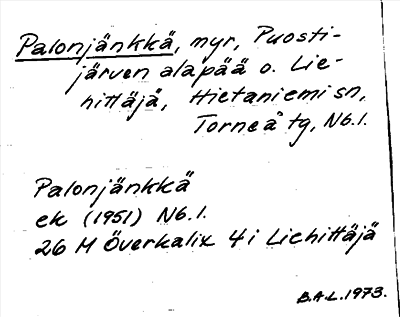 Palonjänkkä, myr, Puosti-
järven alapää o. Lie-
hittäjä, Hietaniemi sn,
Torneå tg, Nb.l.
Palonjänkkä
ek (1951) Nb.l.
26 M Överkalix 4i Liehittäjä
B.A.L. 1973.